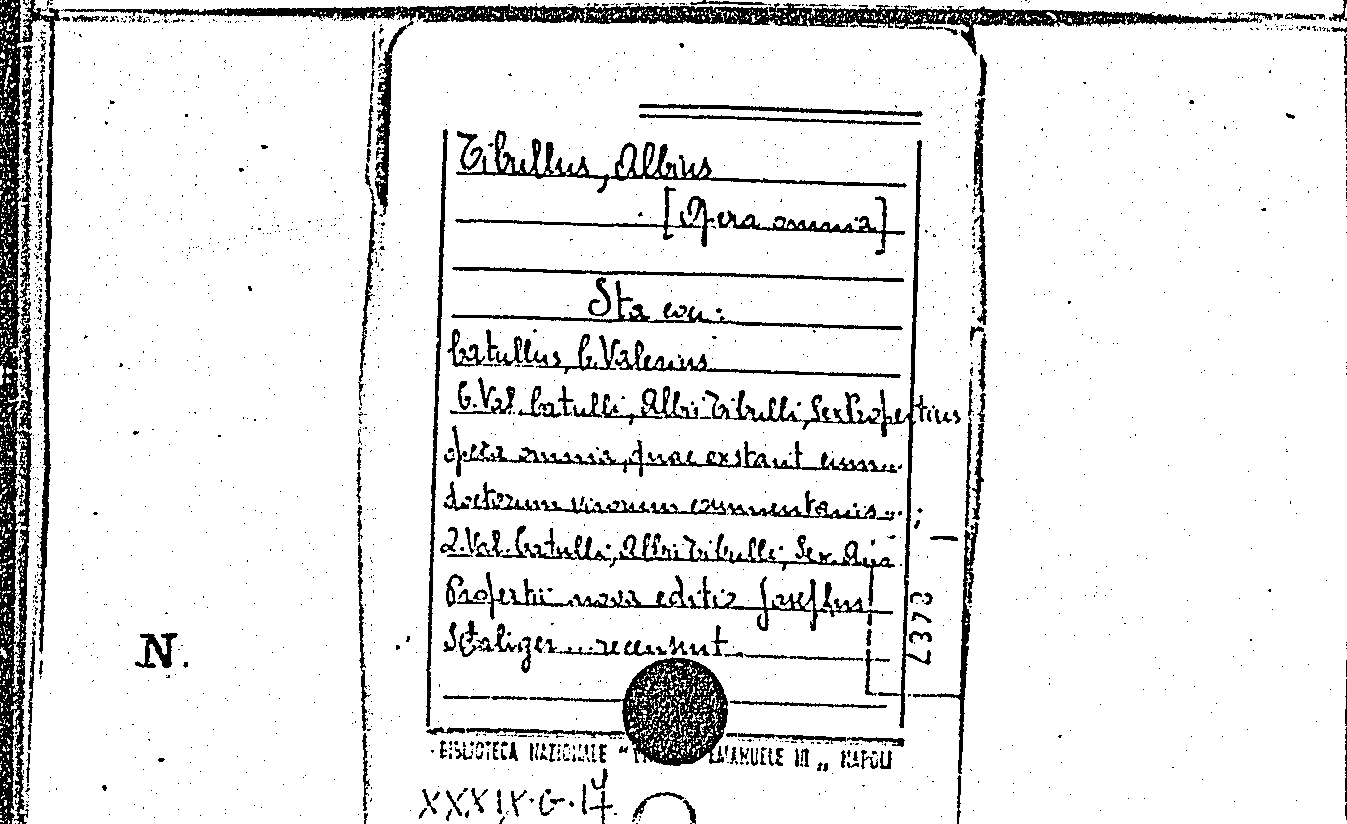 Tibullus, Albius
[Opera omnia]
Sta con:
Catullus, C. Valerius
C. Val. Catulli, Albii Tibulli, Sex Propertius
opera omnia, quae exstant cum..
doctorum virorum commentariis...;
2. Val. Catulli, Albii Tibulli, Sex. Aua
Propertii nova editio Josephus
Scaliger... recensuit
2437
N.
BIBLIOTECA NAZIONALE " EMANUELE III „ NAPOLI
XXXIX.G.17